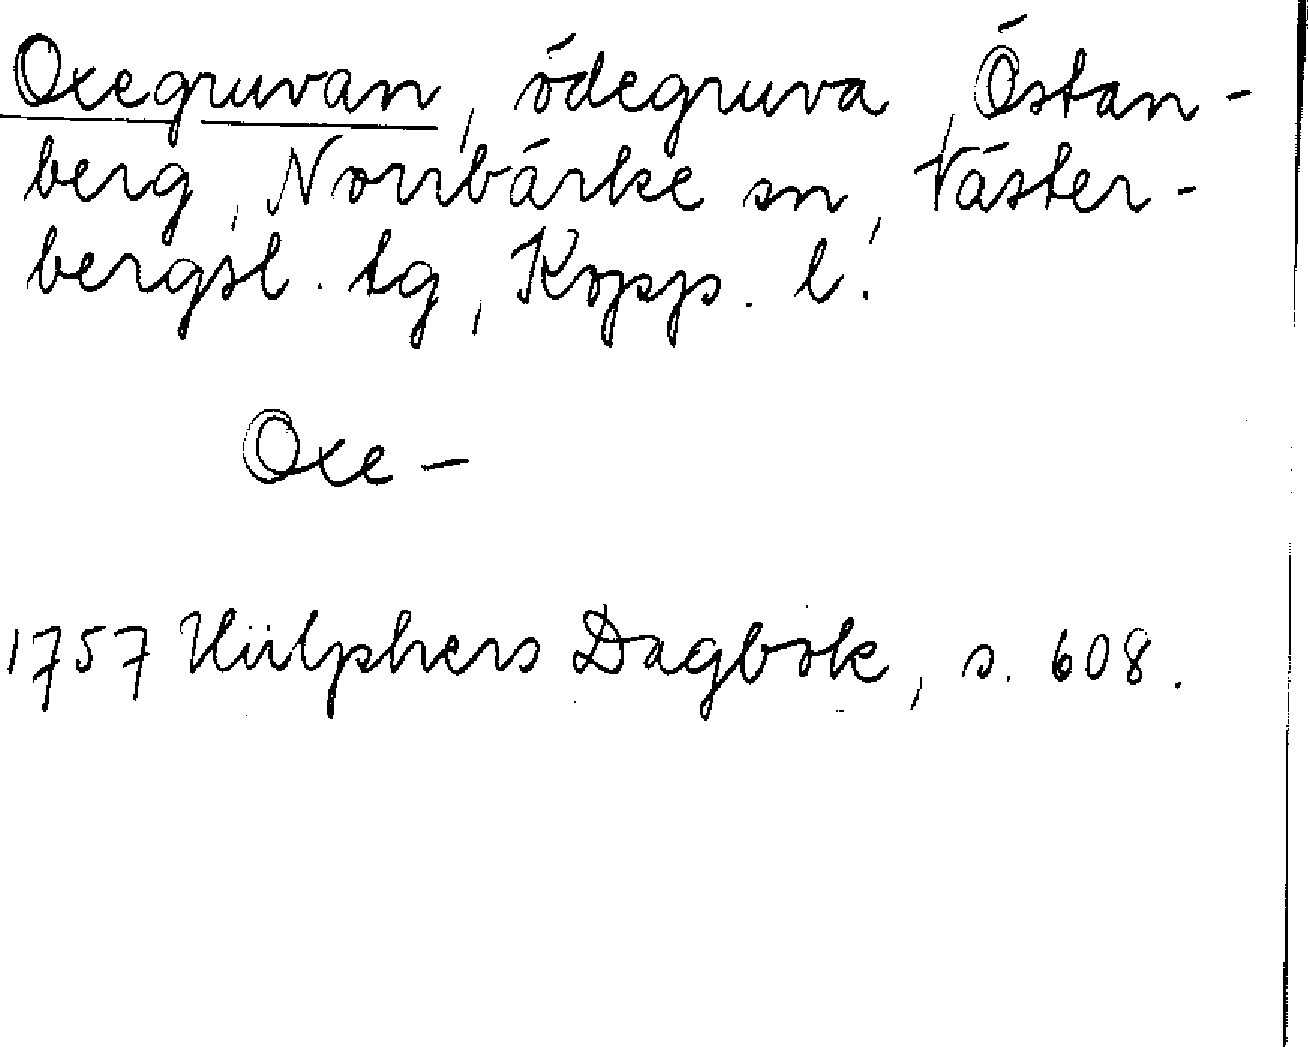 Oxegruvan, ödegruva, Östan-
berg, Norrbärke sn, Väster-
bergsl. tg, Kopp. l.
Oxe-
1757 Hülphers Dagbok, s. 608.